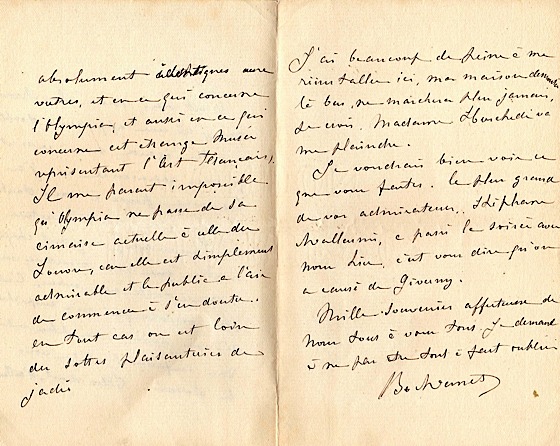 absolument identiques aux
votres, et en ce qui concerne
l'Olympia, et aussi en ce qui
concerne cet étrange Musée
représentant l'Art Français,
Il me parait impossible
qu'Olympia ne passe de sa
cimaise actuelle à celle du
Louvre, car elle est simplement
admirable et le public a l'air
de commencer à s'en douter..
en tout cas on est loin
des sottes plaisanteries de
jadis
J'ai beaucoup de peine à me
réinstaller ici, ma maison
là bas, ne marchera plus jamais,
je crois. Madame Hoschedé va
me plaindre.
Je voudrais bien voir ce
que vous faites. le plus grand
de vos admirateurs, Stéphane
Mallarmé, a passé la soirée avec
nous hier, c'est vous dire qu'on
a causé de Giverny.
Mille souvenirs affectueux de
nous tous à vous tous. Je demande
à ne pas être tout à fait oublié